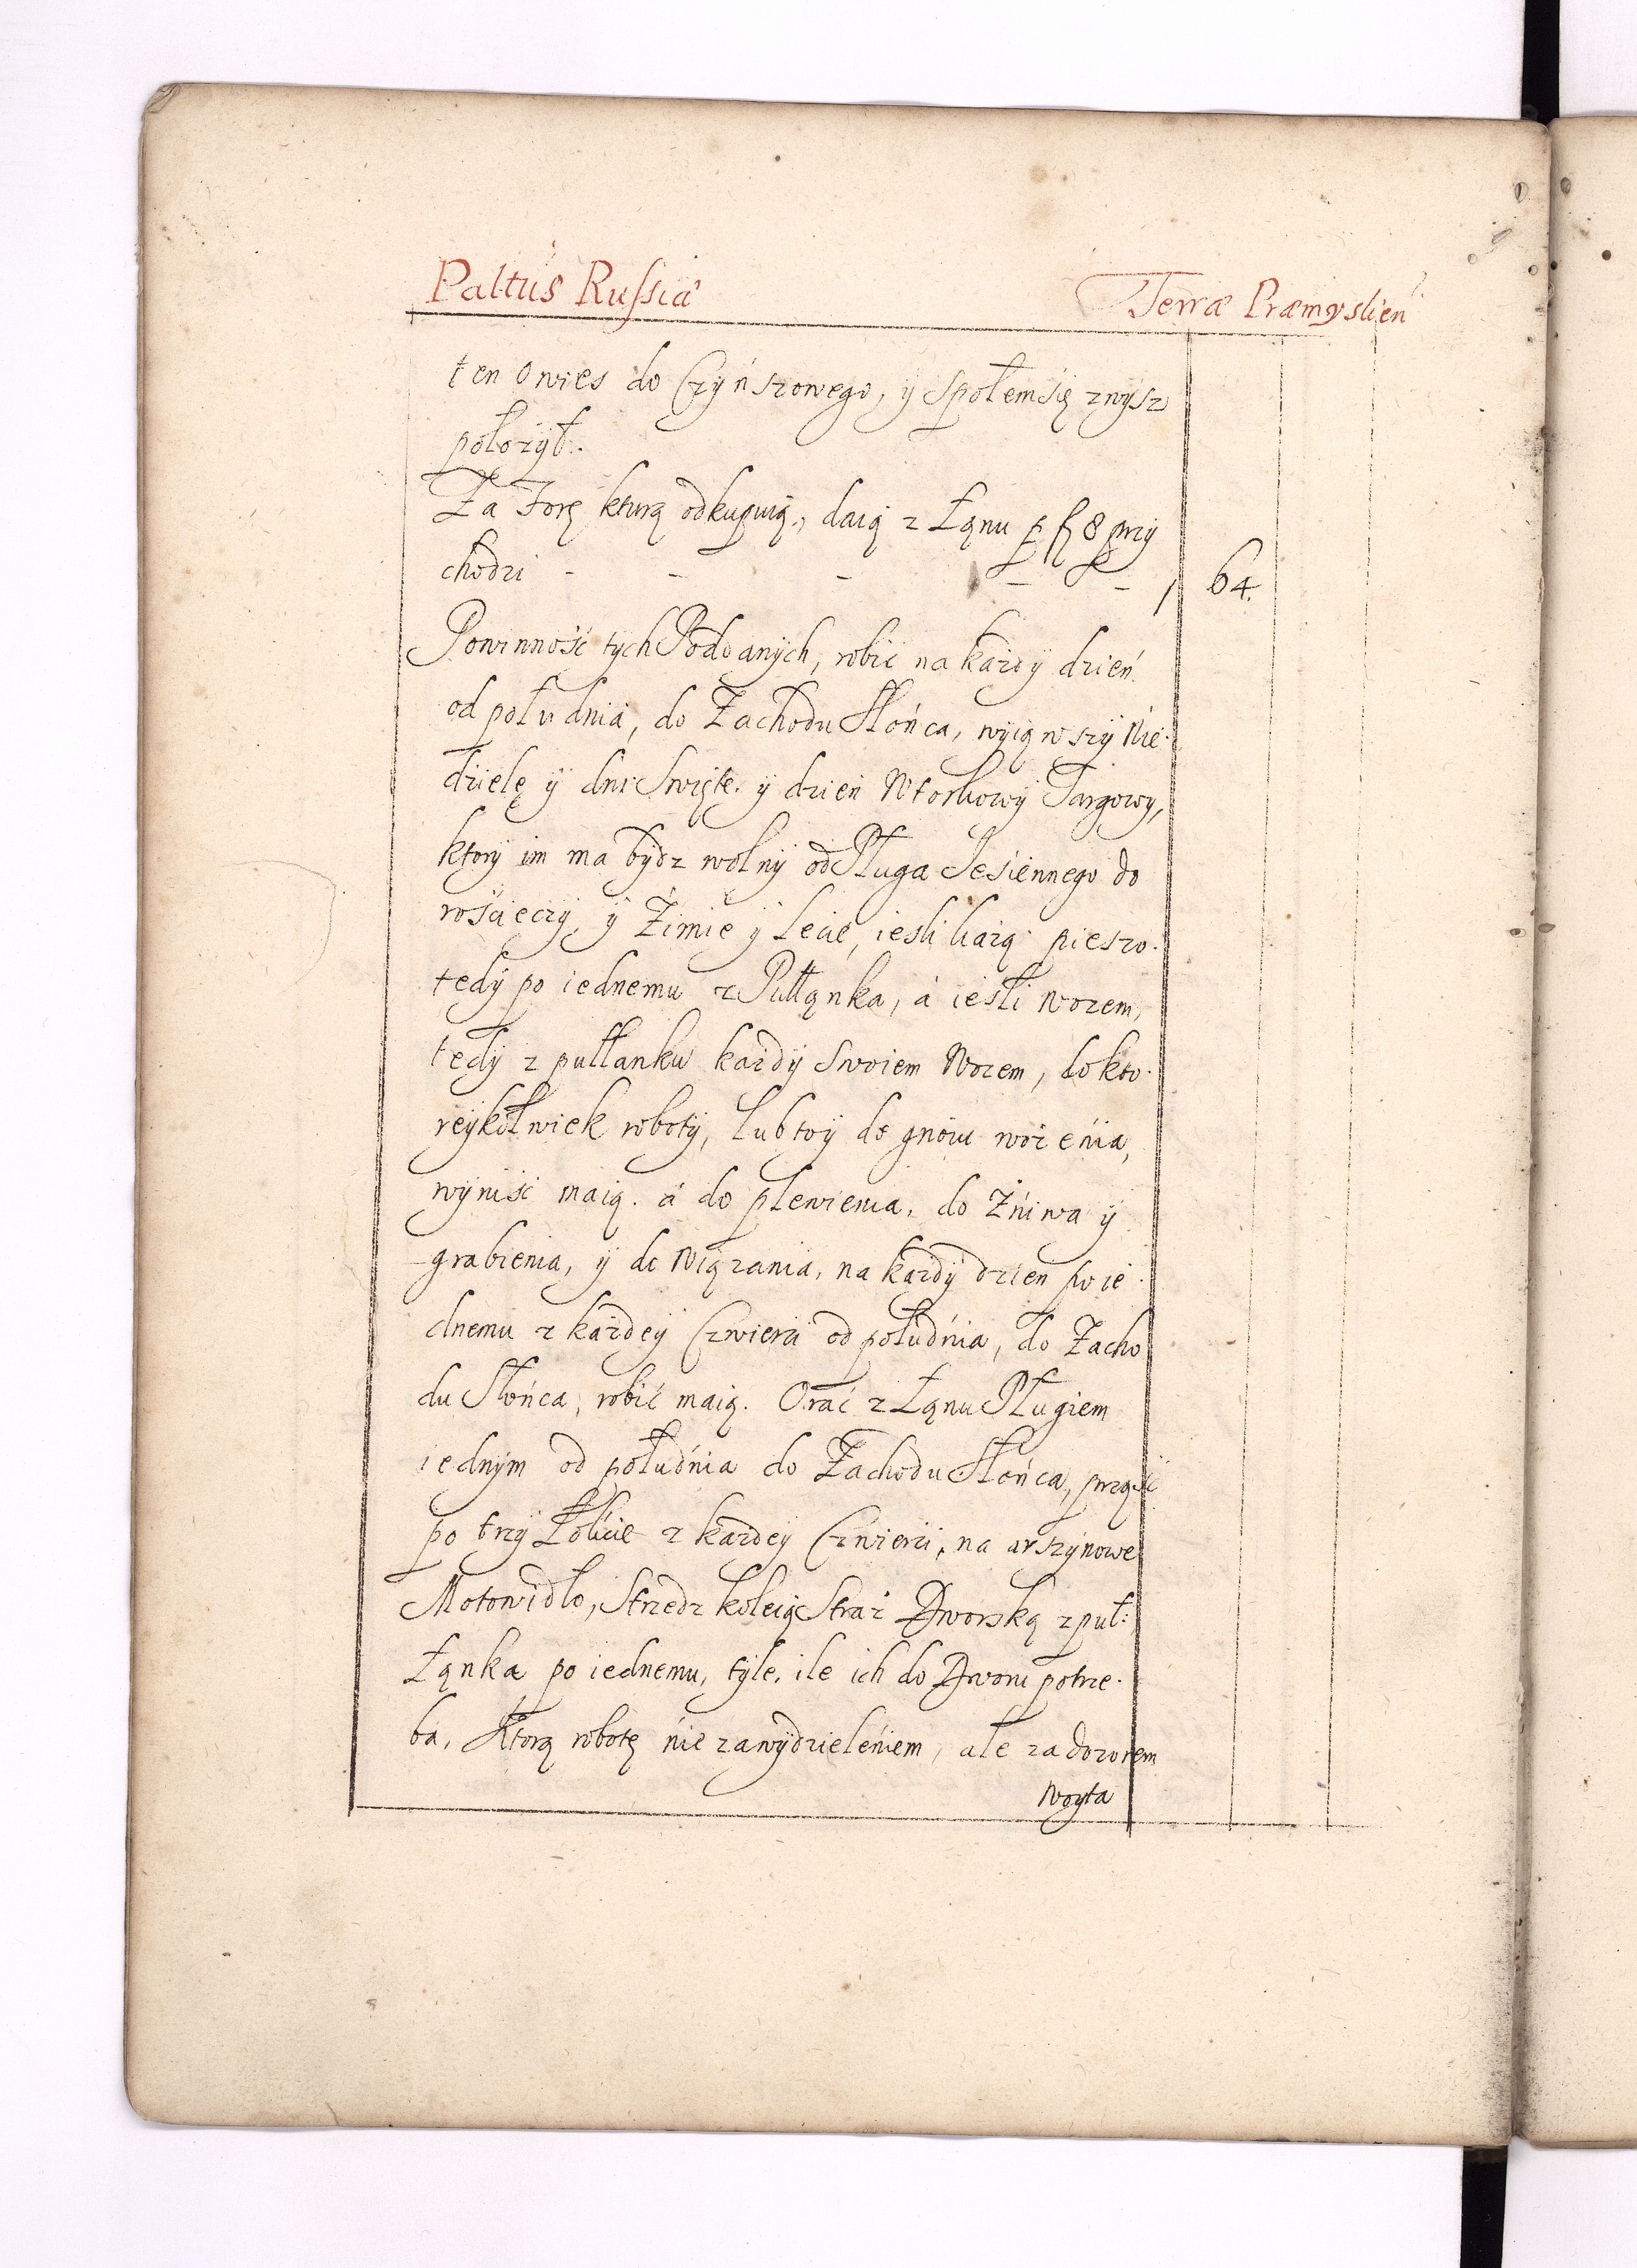 Paltus Russiæ
Terræ Præmyslien
ten Owies do Czÿńszowego, ÿ społem się zwysz
położÿł.
Za Forę kturą odkupuią, daią z Łąnu p f 8 przÿ
chodzi - - - - - / 64.
Powinność tych Poddanÿch, robić na każdÿ dzień
od południa, do Zachodu Słońca, wÿiąwszÿ Nie
dzielę ÿ dni Swięte. ÿ dzień Wtorkowÿ Targowy,
ktorÿ im ma bÿdz wolnÿ od Pługa Jesiennego do
rośćieczÿ, ÿ Zimie ÿ Lecie, iesli każą pieszo.
tedÿ po iednemu z Pułłąnka, á iesli wozem,
tedÿ z pułłanku każdÿ swoiem Wozem, do kto
reÿkolwiek robotÿ, lub toÿ do gnoiu wożeńia,
wÿniść maią. á do plewienia, do Żńiwa ÿ
grabienia, ÿ do Wiązania, na każdÿ dzien po ie
dnemu z każdeÿ Czwierci od południa, do Zacho
du Słońca, robić maią. Orać z Łąnu Pługiem
iednÿm od południa do Zachodu Słońca, prząść
po trzÿ Łokcie z każdeÿ Czwierci, na arszÿnowe
Motowidło, Strzedz koleią Straż Dworską z puł:
Łąnka po iednemu, tÿle, ile ich do Dworu potrze
ba, Ktorą robotę ńie za wÿdzieleńiem, ale za dozorem
Woyta